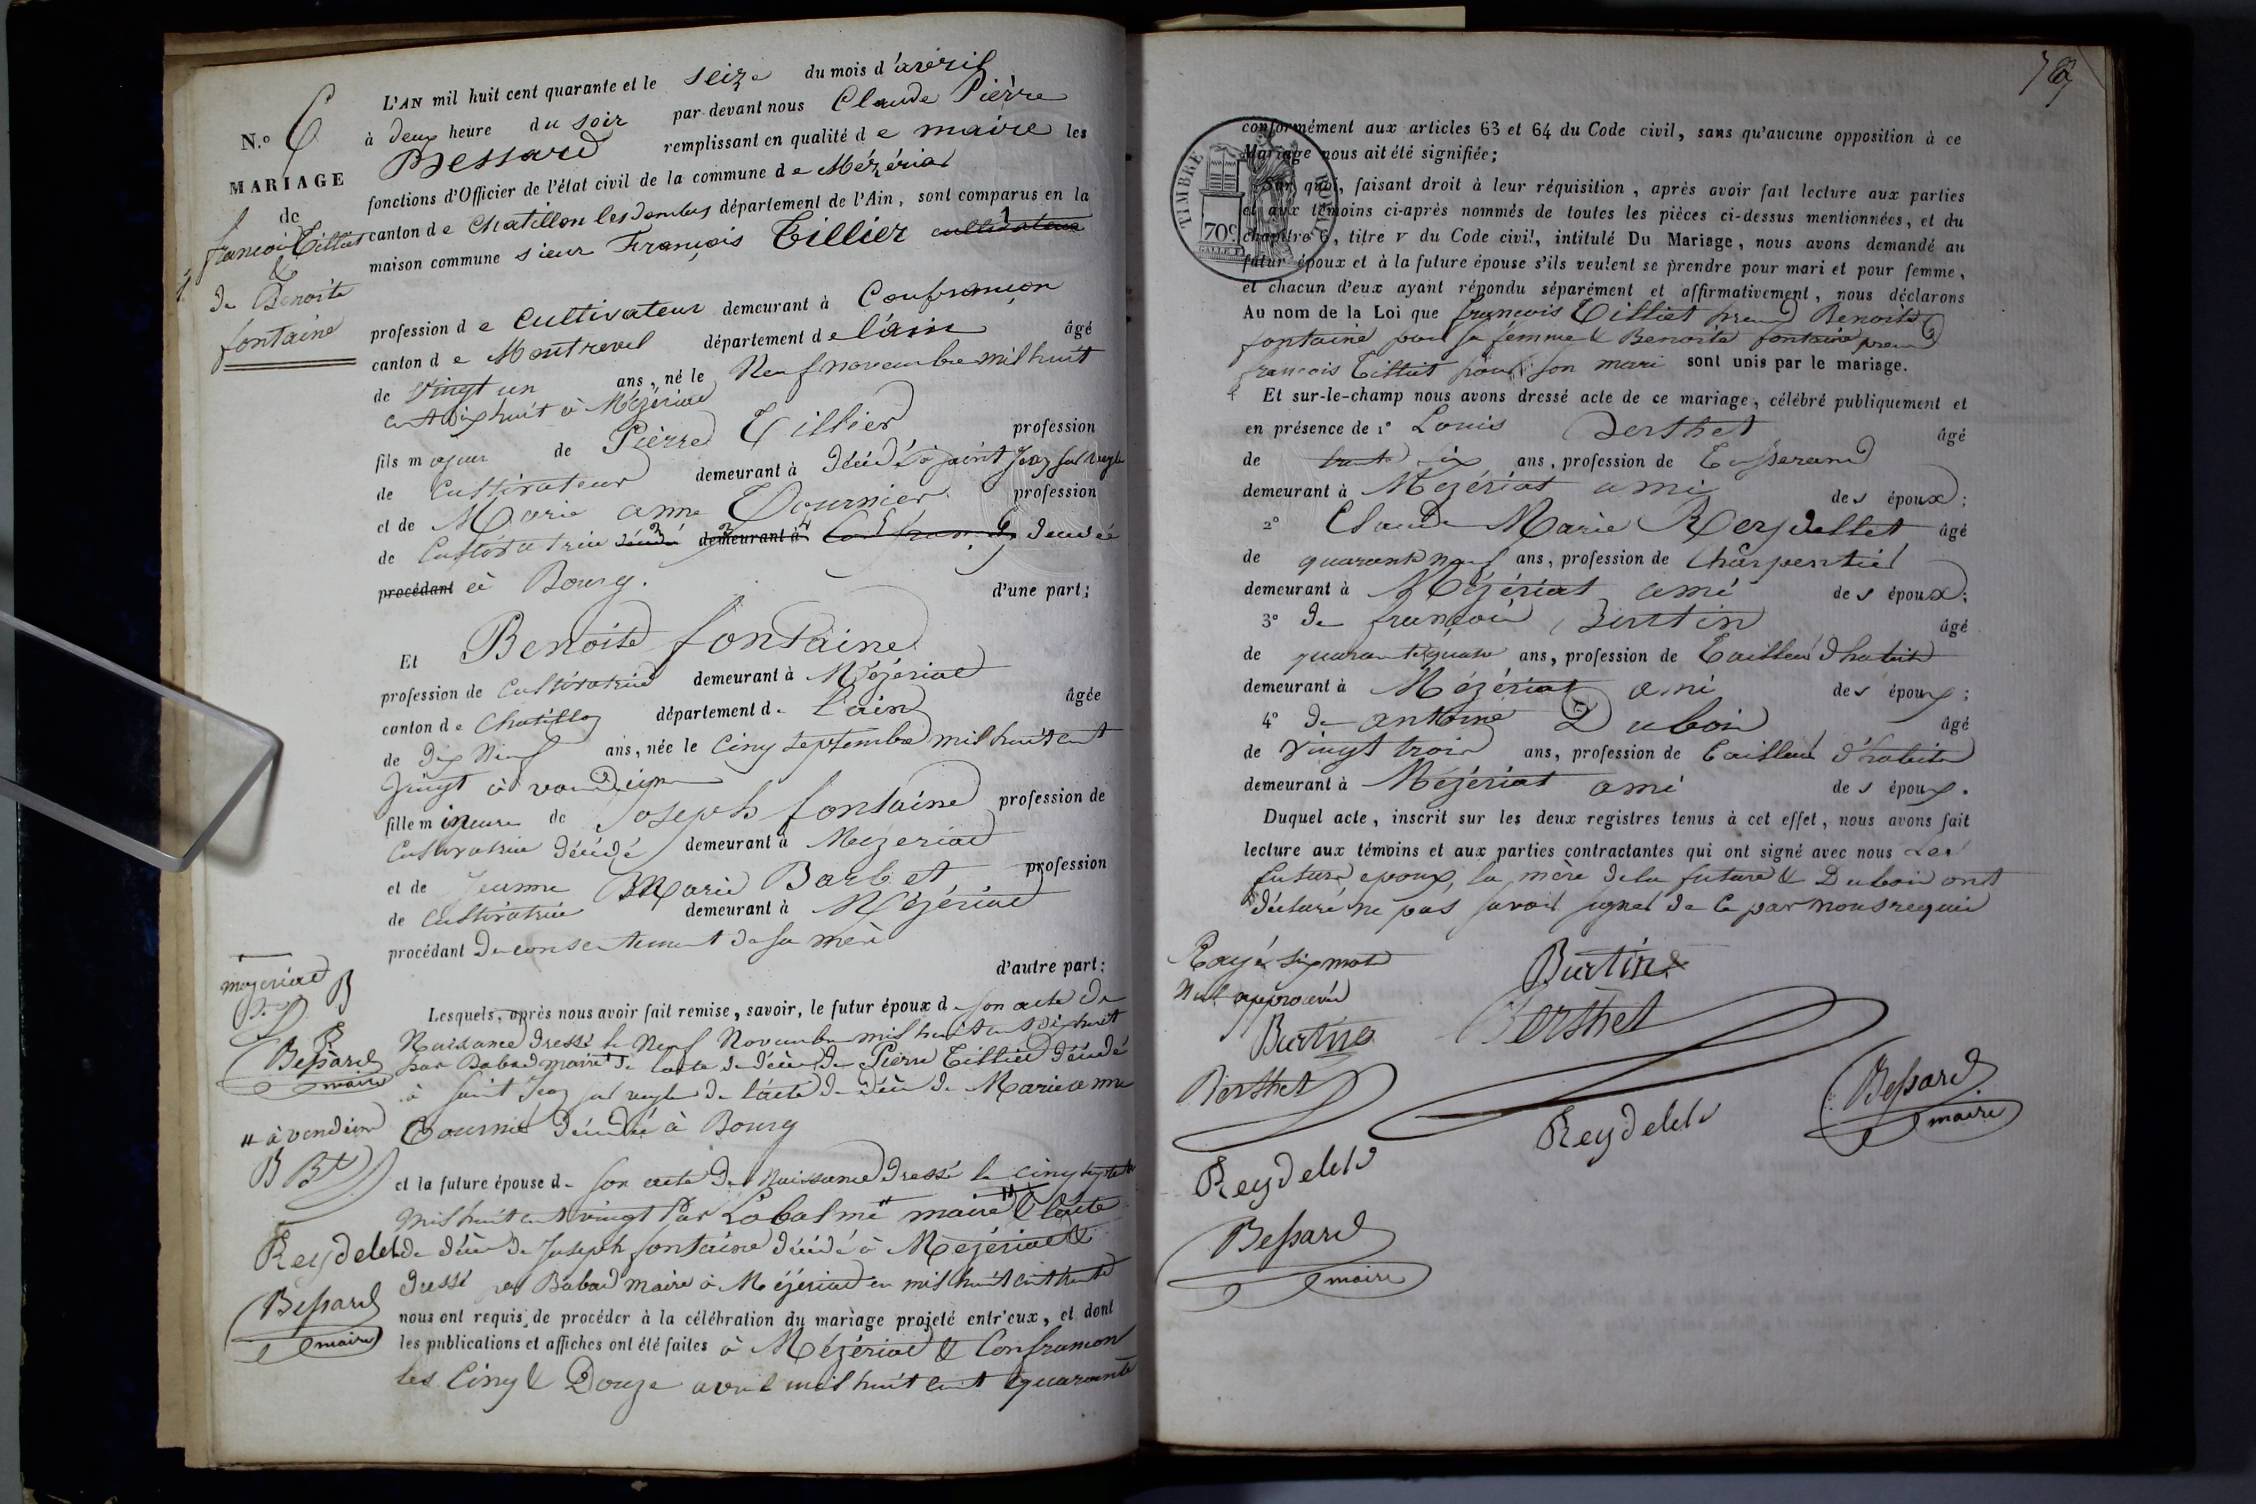 N.º 6
MARIAGE
de
françois Tilliet
&
de Benoite
fontaine
L'AN mil huit cent quarante et le seize du mois d'avril
à deux heure du soir par-devant nous Claude Pièrre
Bessard remplissant en qualité de maire les
fonctions d'Officier de l'état civil de la commune de Mézériat
canton de Chatillon les dombes département de l'Ain, sont comparus en la
maison commune sieur François Tillier cultivateur
profession de Cultivateur demeurant à Confrançon
canton de Montrevel département de l'ain âgé
de vingt un ans, né le Neuf novembre mil huit
cent dix huit à Mézériat
fils majeur de Pièrre Tillier profession
de Cultivateur demeurant à décédé à saint Jean sur veyle
et de Marie anne Tournier profession
de Cultivatrice décédé demeurant à décédée
procédant à Bourg. d'une part;
Et Benoite fontaine
profession de Cultivatrice demeurant à Mézériat
canton de Chatillon département de l'ain âgée
de dix Neuf ans, née le cinq septembre mil huit cent
vingt à vandeins
fille mineure de Joseph fontaine profession de
Cultivatrice décédé demeurant à Mézériat
et de Jeanne Marie Barbet profession
de Cultivatrice demeurant à Mézériat
procédant du consentement de sa mère
d'autre part;
Lesquels, après nous avoir fait remise, savoir, le futur époux de son acte de
Naissance dressé le Neuf Novembre mil huit cent dix huit
par Babad maire de l'acte de décès de Pierre Tillier décédé
à saint Jean sur veyle de l'acte de décès de Marie anne
Tournier décédée à Bourg
et la future épouse de son acte de Naissance dressé le cinq septembre
mil huit cent vingt Par Labalme maire & l'acte
de décès de Joseph fontaine décédé à Mézériat &
dressé par Babad maire à Mézériat en mil huit cent trente
nous ont requis de procéder à la célébration du mariage projeté entr'eux, et dont
les publications et affiches ont été faites à Mézériat & Confrançon
les Cinq & Douze avril mil huit cent quarante
mezeriat B
Bessard
maire
" à vandeins
B Bt
Reydelet
Bessard
maire
TIMBRE ROYAL
70c
conformément aux articles 63 et 64 du Code civil, sans qu'aucune opposition à ce
Mariage nous ait été signifiée;
Sur quoi, faisant droit à leur réquisition, après avoir fait lecture aux parties
et aux témoins ci-après nommés de toutes les pièces ci-dessus mentionnées, et du
chapitre 6, titre V du Code civil, intitulé Du Mariage, nous avons demandé au
futur époux et à la future épouse s'ils veulent se prendre pour mari et pour femme,
et chacun d'eux ayant répondu séparément et affirmativement, nous déclarons
Au nom de la Loi que françois Tilliet prend Benoite
fontaine pour sa femme & Benoite fontaine prend
francois Tilliet pour son mari sont unis par le mariage.
Et sur-le-champ nous avons dressé acte de ce mariage, célébré publiquement et
en présence de 1º Louis Berthet âgé
de trente six ans, profession de Tisserand
demeurant à Mézériat ami des époux;
2º Claude Marie Reydellet âgé
de quarante neuf ans, profession de Charpentier
demeurant à Mézériat ami des époux;
3º de françois Burtin âgé
de quarante quatre ans, profession de Tailleur d'habits
demeurant à Mézériat ami des époux;
4º de antoine Dubois âgé
de Vingt trois ans, profession de Tailleur d'habits
demeurant à Mézériat ami des époux.
Duquel acte, inscrit sur les deux registres tenus à cet effet, nous avons fait
lecture aux témoins et aux parties contractantes qui ont signé avec nous Les
futurs epoux, la mère de la future & Dubois ont
déclaré ne pas savoir signer de ce par nous requis
Rayé six mots
Nul approuvés
Burtin
Burtin
Berthet
Berthet
Reydelet
Reydelet
Bessard
maire
Bessard
maire